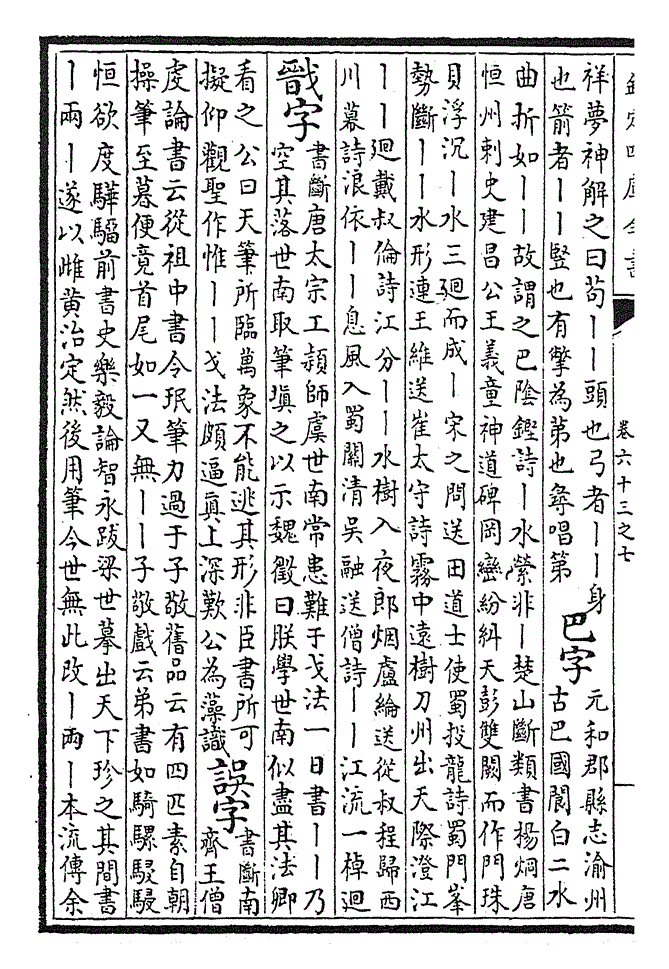 欽定四庫全書
卷六十三之七
祥夢神解之曰茍丨丨頭也弓者丨丨身
也箭者丨丨竪也有擎為第也尋唱第
巴字
元和郡縣志渝州
古巴國閬白二水
曲折如丨丨故謂之巴陰鏗詩丨水縈非丨楚山斷類書楊炯唐
恒州刺史建昌公王義童神道碑岡巒紛糾天彭雙闕而作門珠
貝浮沉丨水三廻而成丨宋之問送田道士使蜀投龍詩蜀門峯
勢斷丨丨水形連王維送崔太守詩霧中遠樹刀州出天際澄江
丨丨廻戴叔倫詩江分丨丨水樹入夜郎烟盧綸送從叔程歸西
川幕詩浪依丨丨息風入蜀關清吳融送僧詩丨丨江流一棹迴
戩字
書斷唐太宗工潁師虞世南常患難于戈法一日書丨丨乃
空其落世南取筆填之以示魏徵曰朕學世南似盡其法卿
看之公曰天筆所臨萬象不能逃其形非臣書所可
擬仰觀聖作惟丨丨戈法頗逼真上深歎公為藻識
誤字
書斷南
齊王僧
虔論書云從祖中書令珉筆力過于子敬舊品云有四匹素自朝
操筆至暮便竟首尾如一又無丨丨子敬戲云弟書如騎騾駸駸
恒欲度驊騮前書史樂毅論智永跋梁世摹出天下珍之其間書
丨兩丨遂以雌黄治定然後用筆今世無此改丨兩丨本流傳余